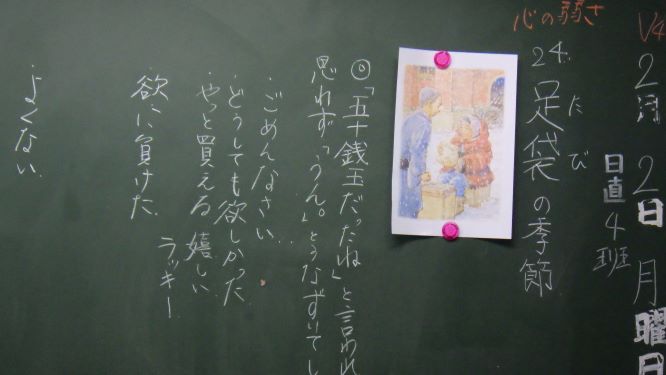 2月 2日 月曜日
日直 4班
心の弱さ
24. 足袋の季節
たび
◎「五十銭玉だったね」と言われ
思わず「うん。」とうなずいてし
・ごめんなさい…
・どうしても欲しかった
・やっと買える 嬉しい
ラッキー
・欲に負けた
・よくない